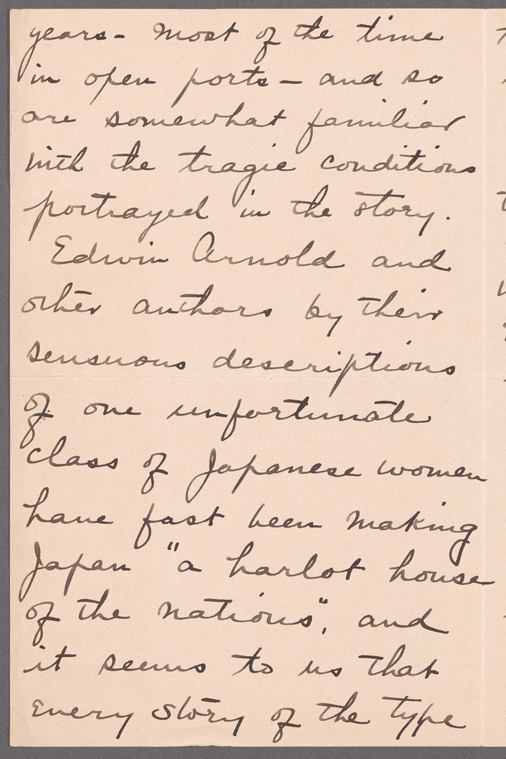 years - most of the time
in open ports - and so
are somewhat familiar
with the tragic conditions
portrayed in the story.
Edwin Arnold and
other authors by their
sensuous descriptions
of one unfortunate
class of Japanese women
have fast been making
Japan "a harlot house
of the nations", and
it seems to us that
every story of the type